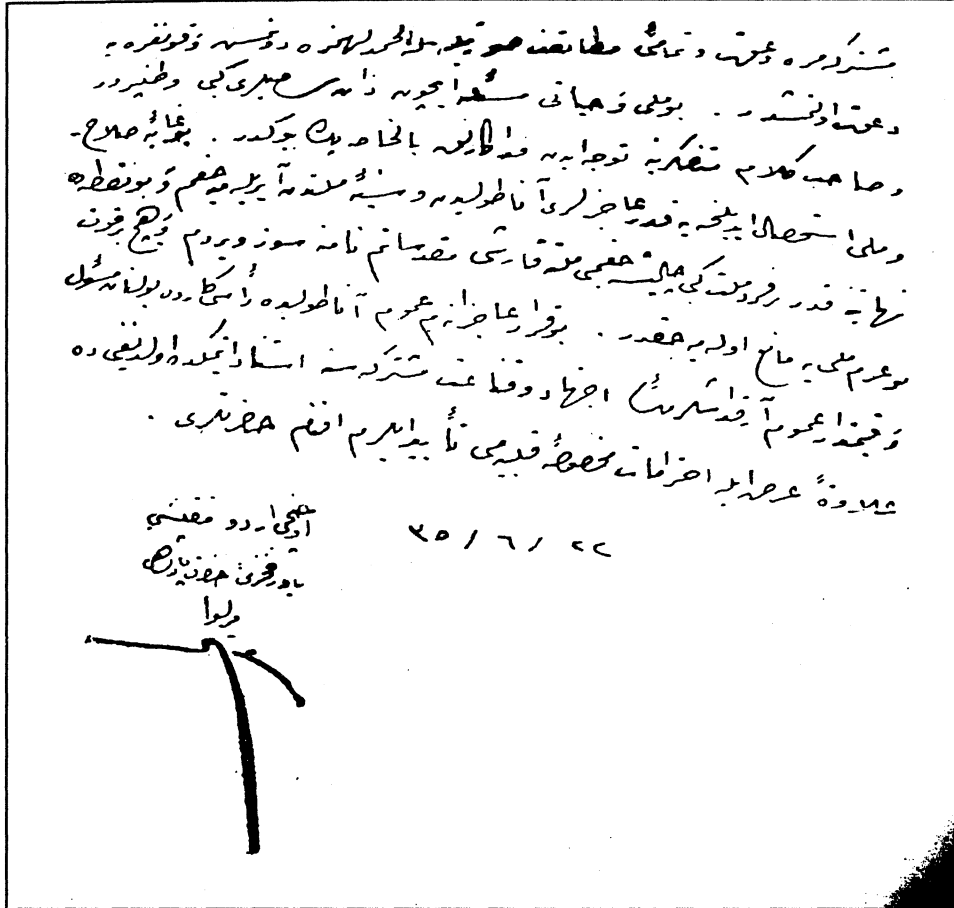 مشتركه مزه دعوت و تمامئ مطابقت صورتيله بله الحمد لهنره دونمسن و قونغره يه
دعوت اولنمشدر . بو ملى و حياتى مسئله ايچون ذات سامئلرى كبى وطنپرور
و صاحب كلام متفكرينه توجه ايدن فداكارلق بالخاصه پك بيوكدر . بو غايۀ صلاح
و ملى استحصال ايديلنجه يه قدر عاجزلرى آناطوليدن و سينۀ ملتدن آيريلميه جغم و بو نقطه ده
نهايته قدر بر فرد ملت كبى چاليشه جغمى ملته قارشى مقدساتم نامنه سوز ويردم و هيچ بر قوت
بو عزم ملى يه مانع اوله ميه جقدر . بو قرار عاجزانه م عموم آناطوليده رأس كارده بولنان مسئول
و قيمتدار عموم آرقداشلريمك اجتهاد و قناعت مشتركه سنه استناد ايتمكده اولديغنى ده
علاوةً عرض ايله احترامات مخصوصۀ قلبيه مى تأييد ايلرم افندم حضرتلرى .
٢٢ / ٦ / ٣٥
اوچنجى اردو مفتيشى
ياور فخرئ حضرت پادشاهى
ميرلوا